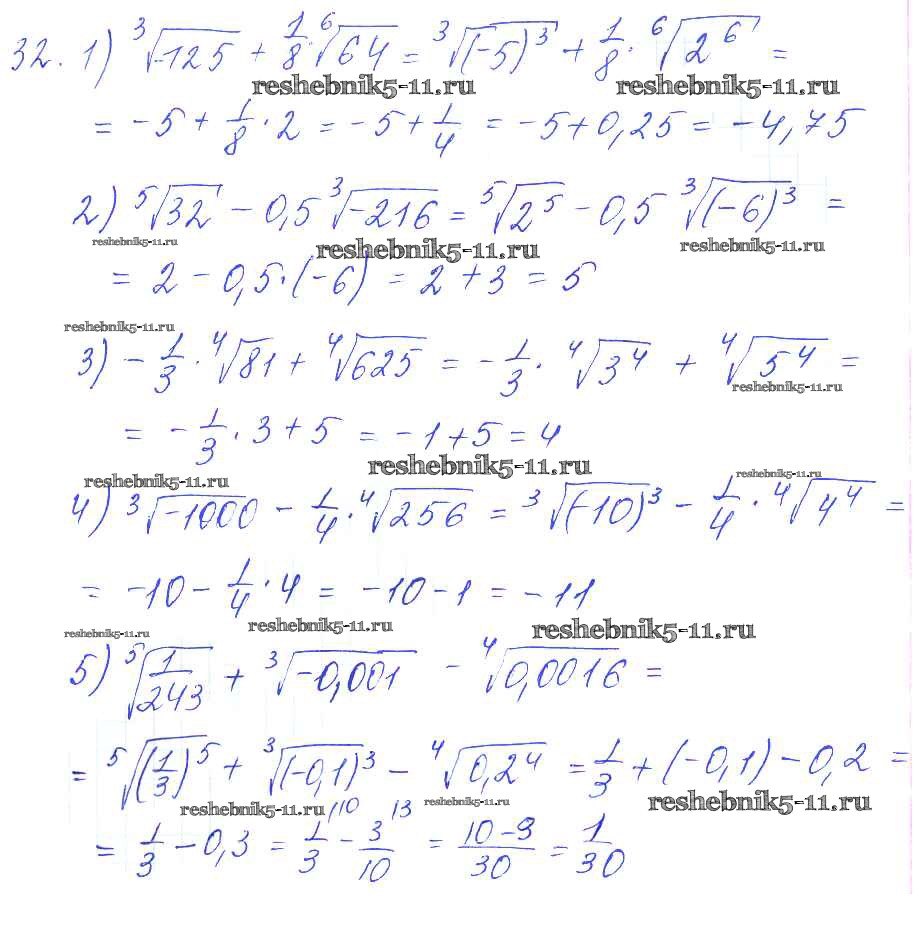 32. 1) ∛(-125) + 1/8 · ⁶√64 = ∛((-5)³) + 1/8 · ⁶√(2⁶) =
reshebnik5-11.ru reshebnik5-11.ru
= -5 + 1/8 · 2 = -5 + 1/4 = -5 + 0,25 = -4,75
2) ⁵√32 - 0,5 ∛(-216) = ⁵√(2⁵) - 0,5 ∛((-6)³) =
reshebnik5-11.ru reshebnik5-11.ru reshebnik5-11.ru
= 2 - 0,5 · (-6) = 2 + 3 = 5
reshebnik5-11.ru
3) - 1/3 · ⁴√81 + ⁴√625 = - 1/3 · ⁴√(3⁴) + ⁴√(5⁴) =
reshebnik5-11.ru
= - 1/3 · 3 + 5 = -1 + 5 = 4
reshebnik5-11.ru
reshebnik5-11.ru reshebnik5-11.ru
4) ∛(-1000) - 1/4 · ⁴√256 = ∛((-10)³) - 1/4 · ⁴√(4⁴) =
= -10 - 1/4 · 4 = -10 - 1 = -11
reshebnik5-11.ru reshebnik5-11.ru reshebnik5-11.ru
5) ⁵√(1/243) + ∛(-0,001) - ⁴√(0,0016) =
= ⁵√((1/3)⁵) + ∛((-0,1)³) - ⁴√(0,2⁴) = 1/3 + (-0,1) - 0,2 =
reshebnik5-11.ru reshebnik5-11.ru reshebnik5-11.ru
= 1/3 - 0,3 = 1/3 \10 - 3/10 \3 = (10-9)/30 = 1/30